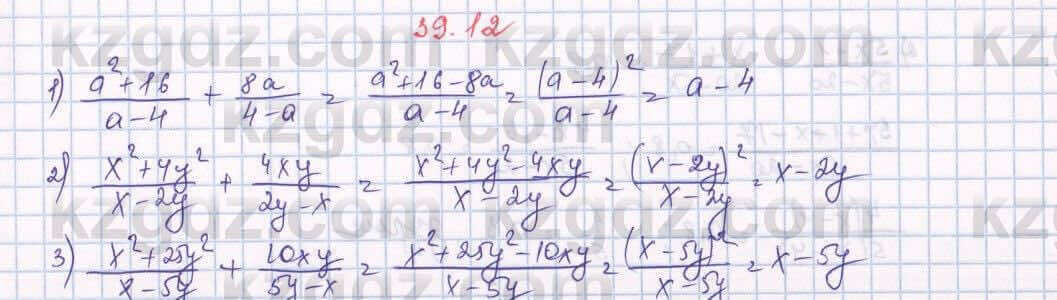 39.12
1) \frac{a^2+16}{a-4} + \frac{8a}{4-a} = \frac{a^2+16-8a}{a-4} = \frac{(a-4)^2}{a-4} = a-4
2) \frac{x^2+4y^2}{x-2y} + \frac{4xy}{2y-x} = \frac{x^2+4y^2-4xy}{x-2y} = \frac{(x-2y)^2}{x-2y} = x-2y
3) \frac{x^2+25y^2}{x-5y} + \frac{10xy}{5y-x} = \frac{x^2+25y^2-10xy}{x-5y} = \frac{(x-5y)^2}{x-5y} = x-5y
kzgdz.com